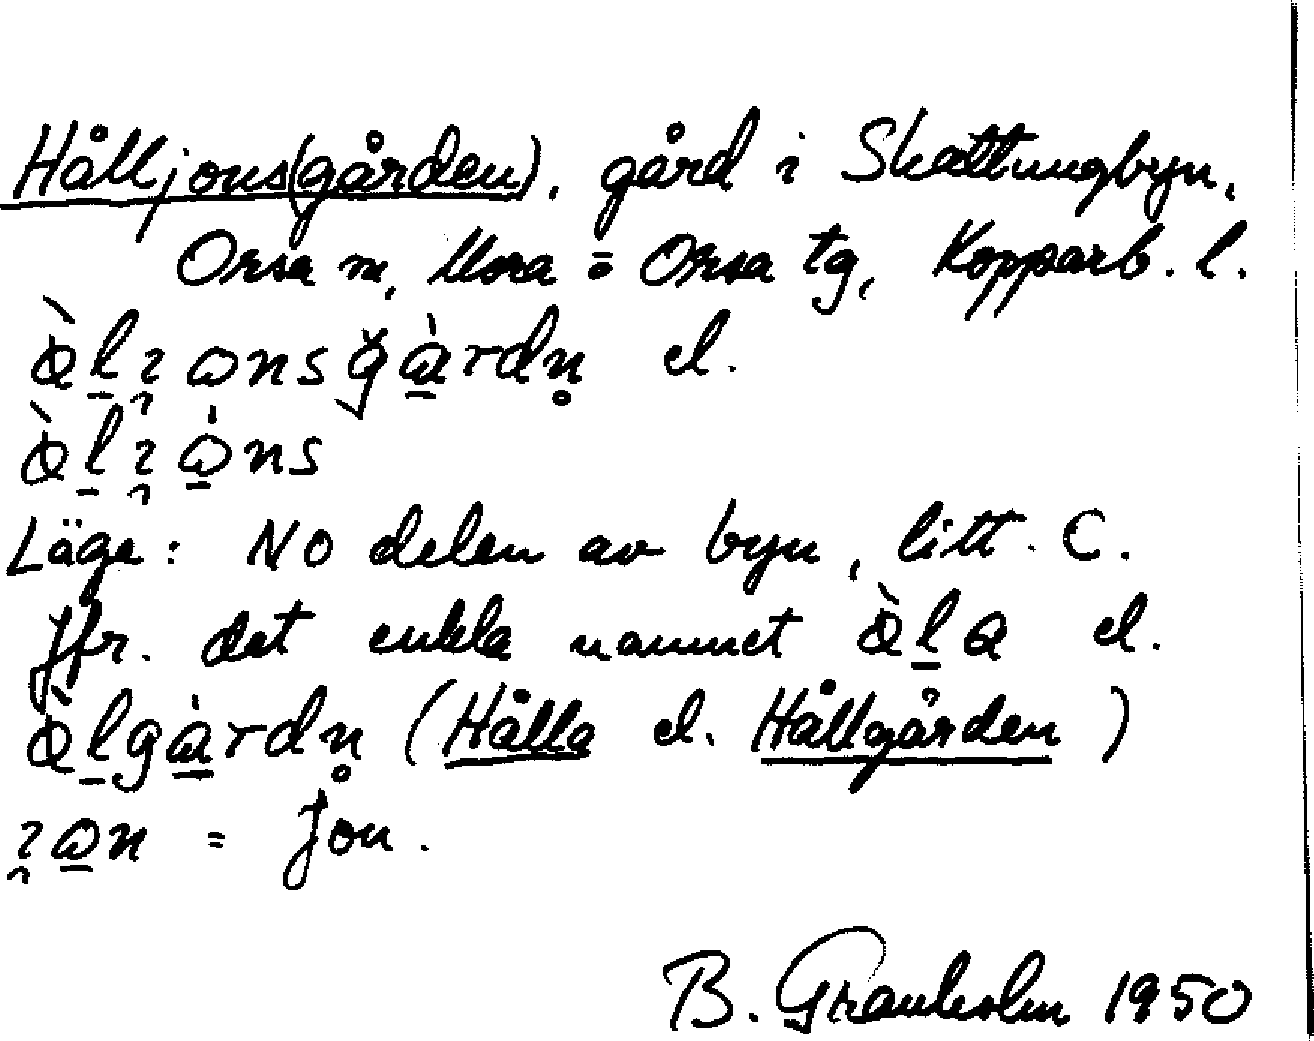 Hålljons(gården), gård i Skattungbyn,
Orsa sn, Mora o Orsa tg, Kopparb. l.
el.
Läge: NO delen av byn, litt. C.
Jfr. det enkla namnet el.
(Hålla el. Hållgården)
= Jon.
B. Granholm 1950